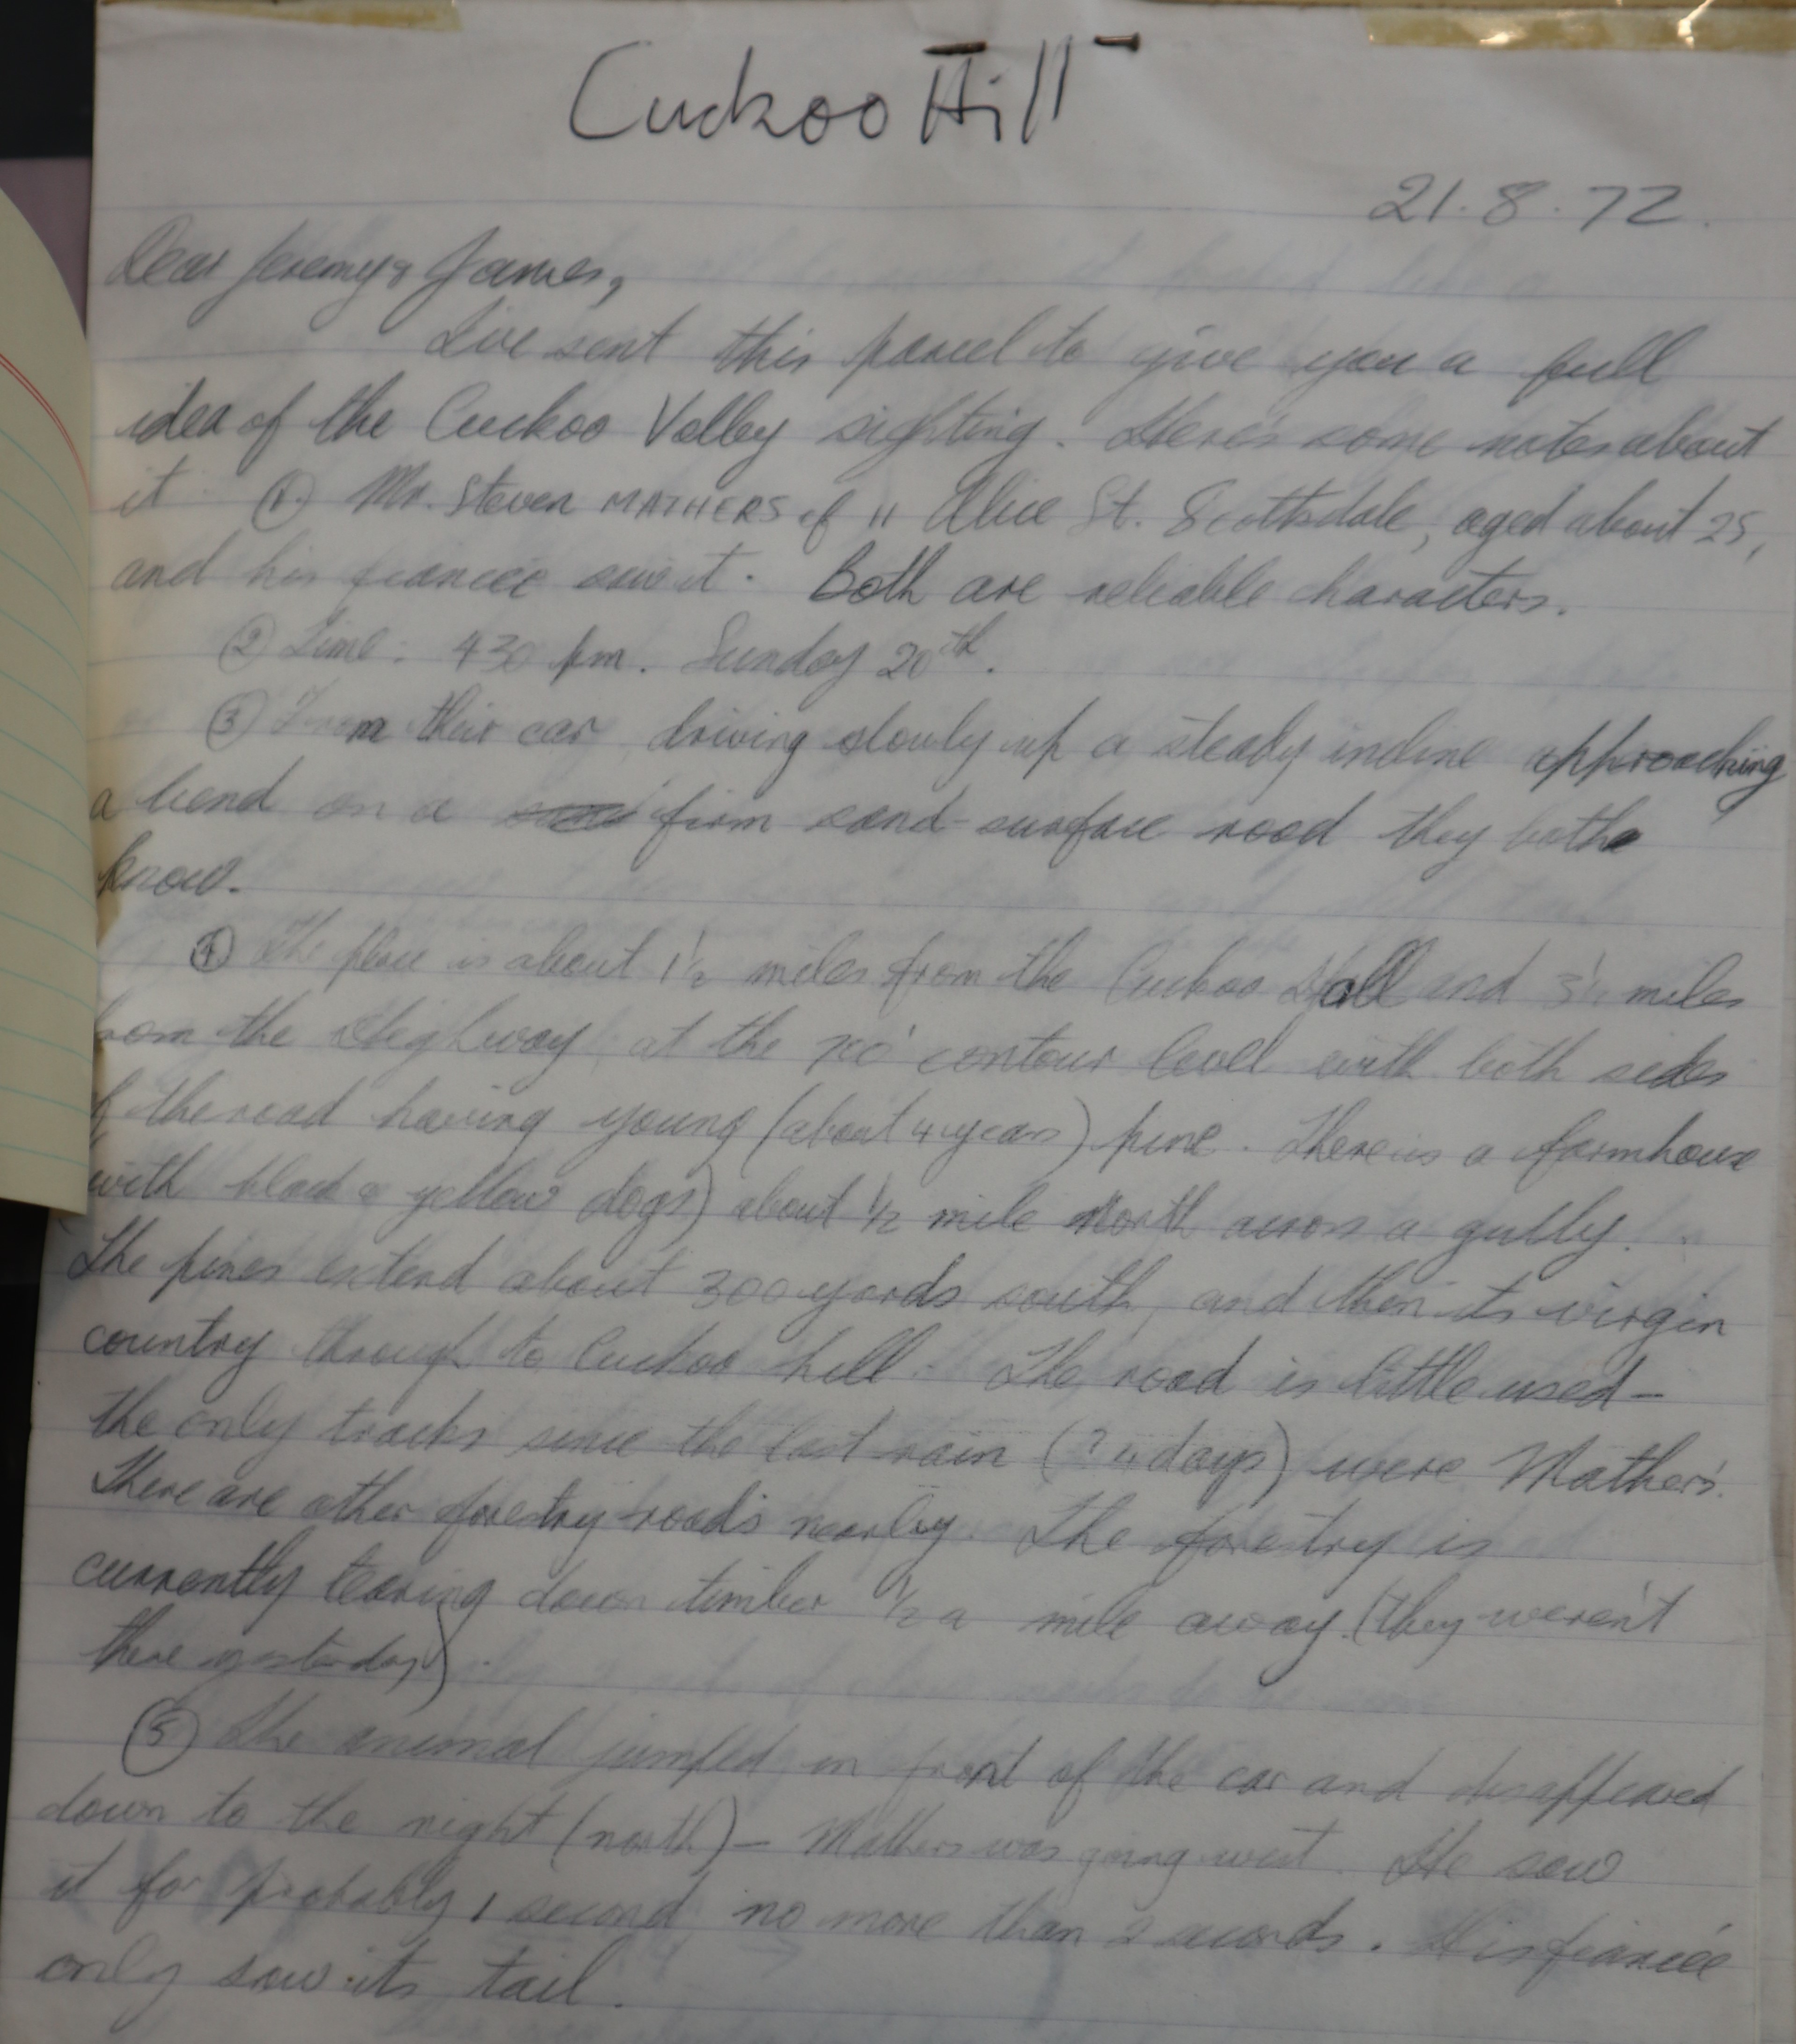 Cuckoo Hill
21.8.72.
Dear Jeremy & James,
I've sent this parcel to give you a full
idea of the Cuckoo Valley sighting. Here's some notes about
it. ① Mr. Steven MATHERS of 11 Alice St. Scottsdale, aged about 25,
and his fiancée saw it. Both are reliable characters.
② Time: 430 pm. Sunday 20th.
③ From their car, driving slowly up a steady incline approaching
a bend on a firm sand-surface road they both
know.
④ The place is about 1½ miles from the Cuckoo Hall and 3½ miles
from the Highway, at the 700' contour level with both sides
of the road having young (about 4 years) pine. There is a farmhouse
(with black & yellow dogs) about ½ mile North across a gully.
The pines extend about 300 yards south, and then its virgin
country through to Cuckoo hill. The road is little used -
the only tracks since the last rain (? 4 days) were Mathers'.
There are other forestry roads nearby. The forestry is
currently tearing down timber ½ a mile away. (they weren't
there yesterday).
⑤ The animal jumped in front of the car and disappeared
down to the right (north) - Mathers was going west. He saw
it for probably 1 second, no more than 2 seconds. His fiancée
only saw its tail.